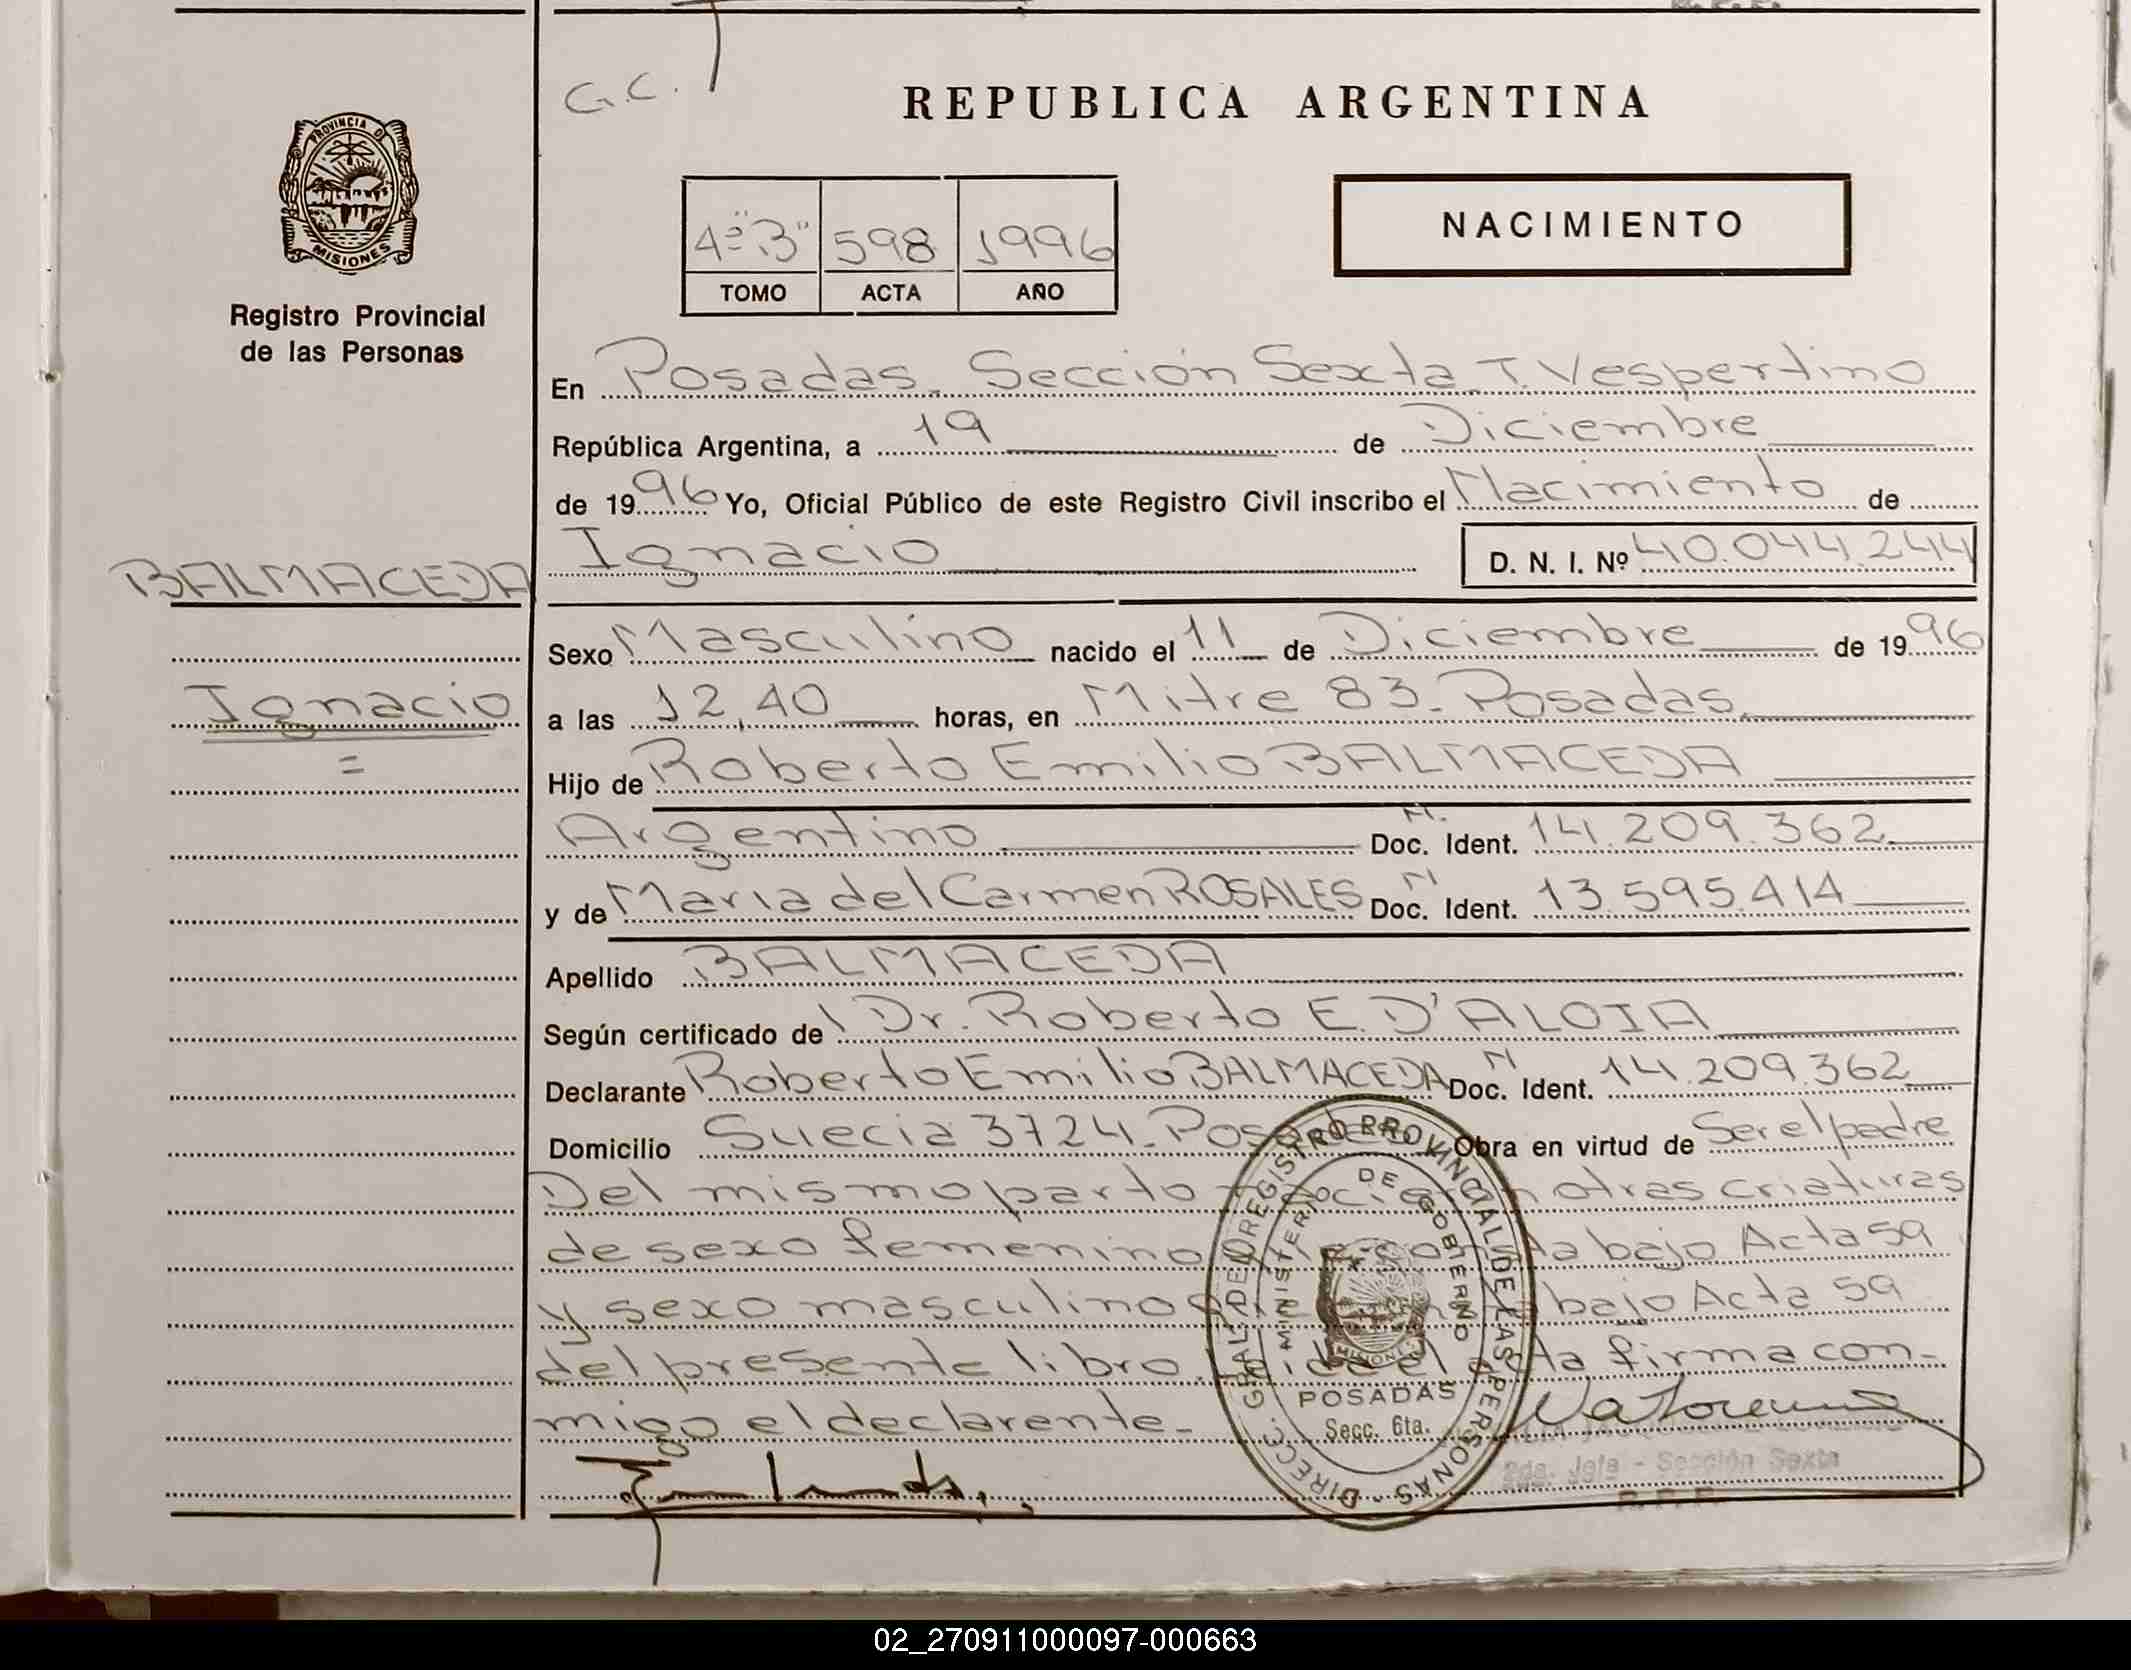 G.C.
REPUBLICA ARGENTINA
PROVINCIA D
MISIONES
Registro Provincial
de las Personas
4º "B" 598 1996
TOMO ACTA AÑO
NACIMIENTO
En Posadas. Sección Sexta T. Vespertino
República Argentina, a 19 de Diciembre
de 1996 Yo, Oficial Público de este Registro Civil inscribo el Nacimiento de
Ignacio D. N. I. Nº 40.044.244
BALMACEDA
Sexo Masculino nacido el 11 de Diciembre de 1996
Ignacio
a las 12,40 horas, en Mitre 83. Posadas
Hijo de Roberto Emilio BALMACEDA
Argentino Doc. Ident. N. 14.209.362
y de Maria del Carmen ROSALES Doc. Ident. N 13.595.414
Apellido BALMACEDA
Según certificado de Dr. Roberto E. D'ALOIA
Declarante Roberto Emilio BALMACEDA Doc. Ident. N 14.209.362
Domicilio Suecia 3724. Posadas Obra en virtud de Ser el padre
Del mismo parto nacieron otras criaturas
de sexo femenino bajo Acta 59
y sexo masculino bajo Acta 59
del presente libro. firma con-
migo el declarente-
DIREC. GRAL. DEL REGISTRO PROVINCIAL DE LAS PERSONAS
MINISTERIO DE GOBIERNO
MISIONES
POSADAS
Secc. 6ta.
2da. Jefe - Sección Sexta
R. P. P.
02_270911000097-000663